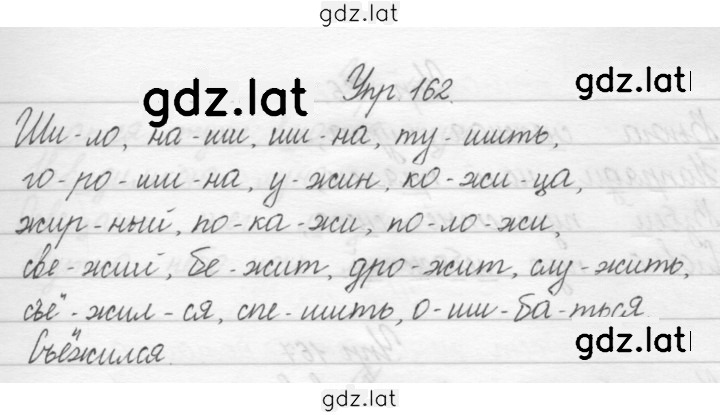 gdz.lat
gdz.lat
gdz.lat
Упр 162.
Ши-ло, на-ши, ши-на, ту-шить,
го-ро-ши-на, у-жин, ко-жи-ца,
жир-ный, по-ка-жи, по-ло-жи,
све-жий, бе-жит, дро-жит, слу-жить,
съё-жил-ся, спе-шить, о-ши-ба-ться.
Съёжился.
gdz.lat
gdz.lat